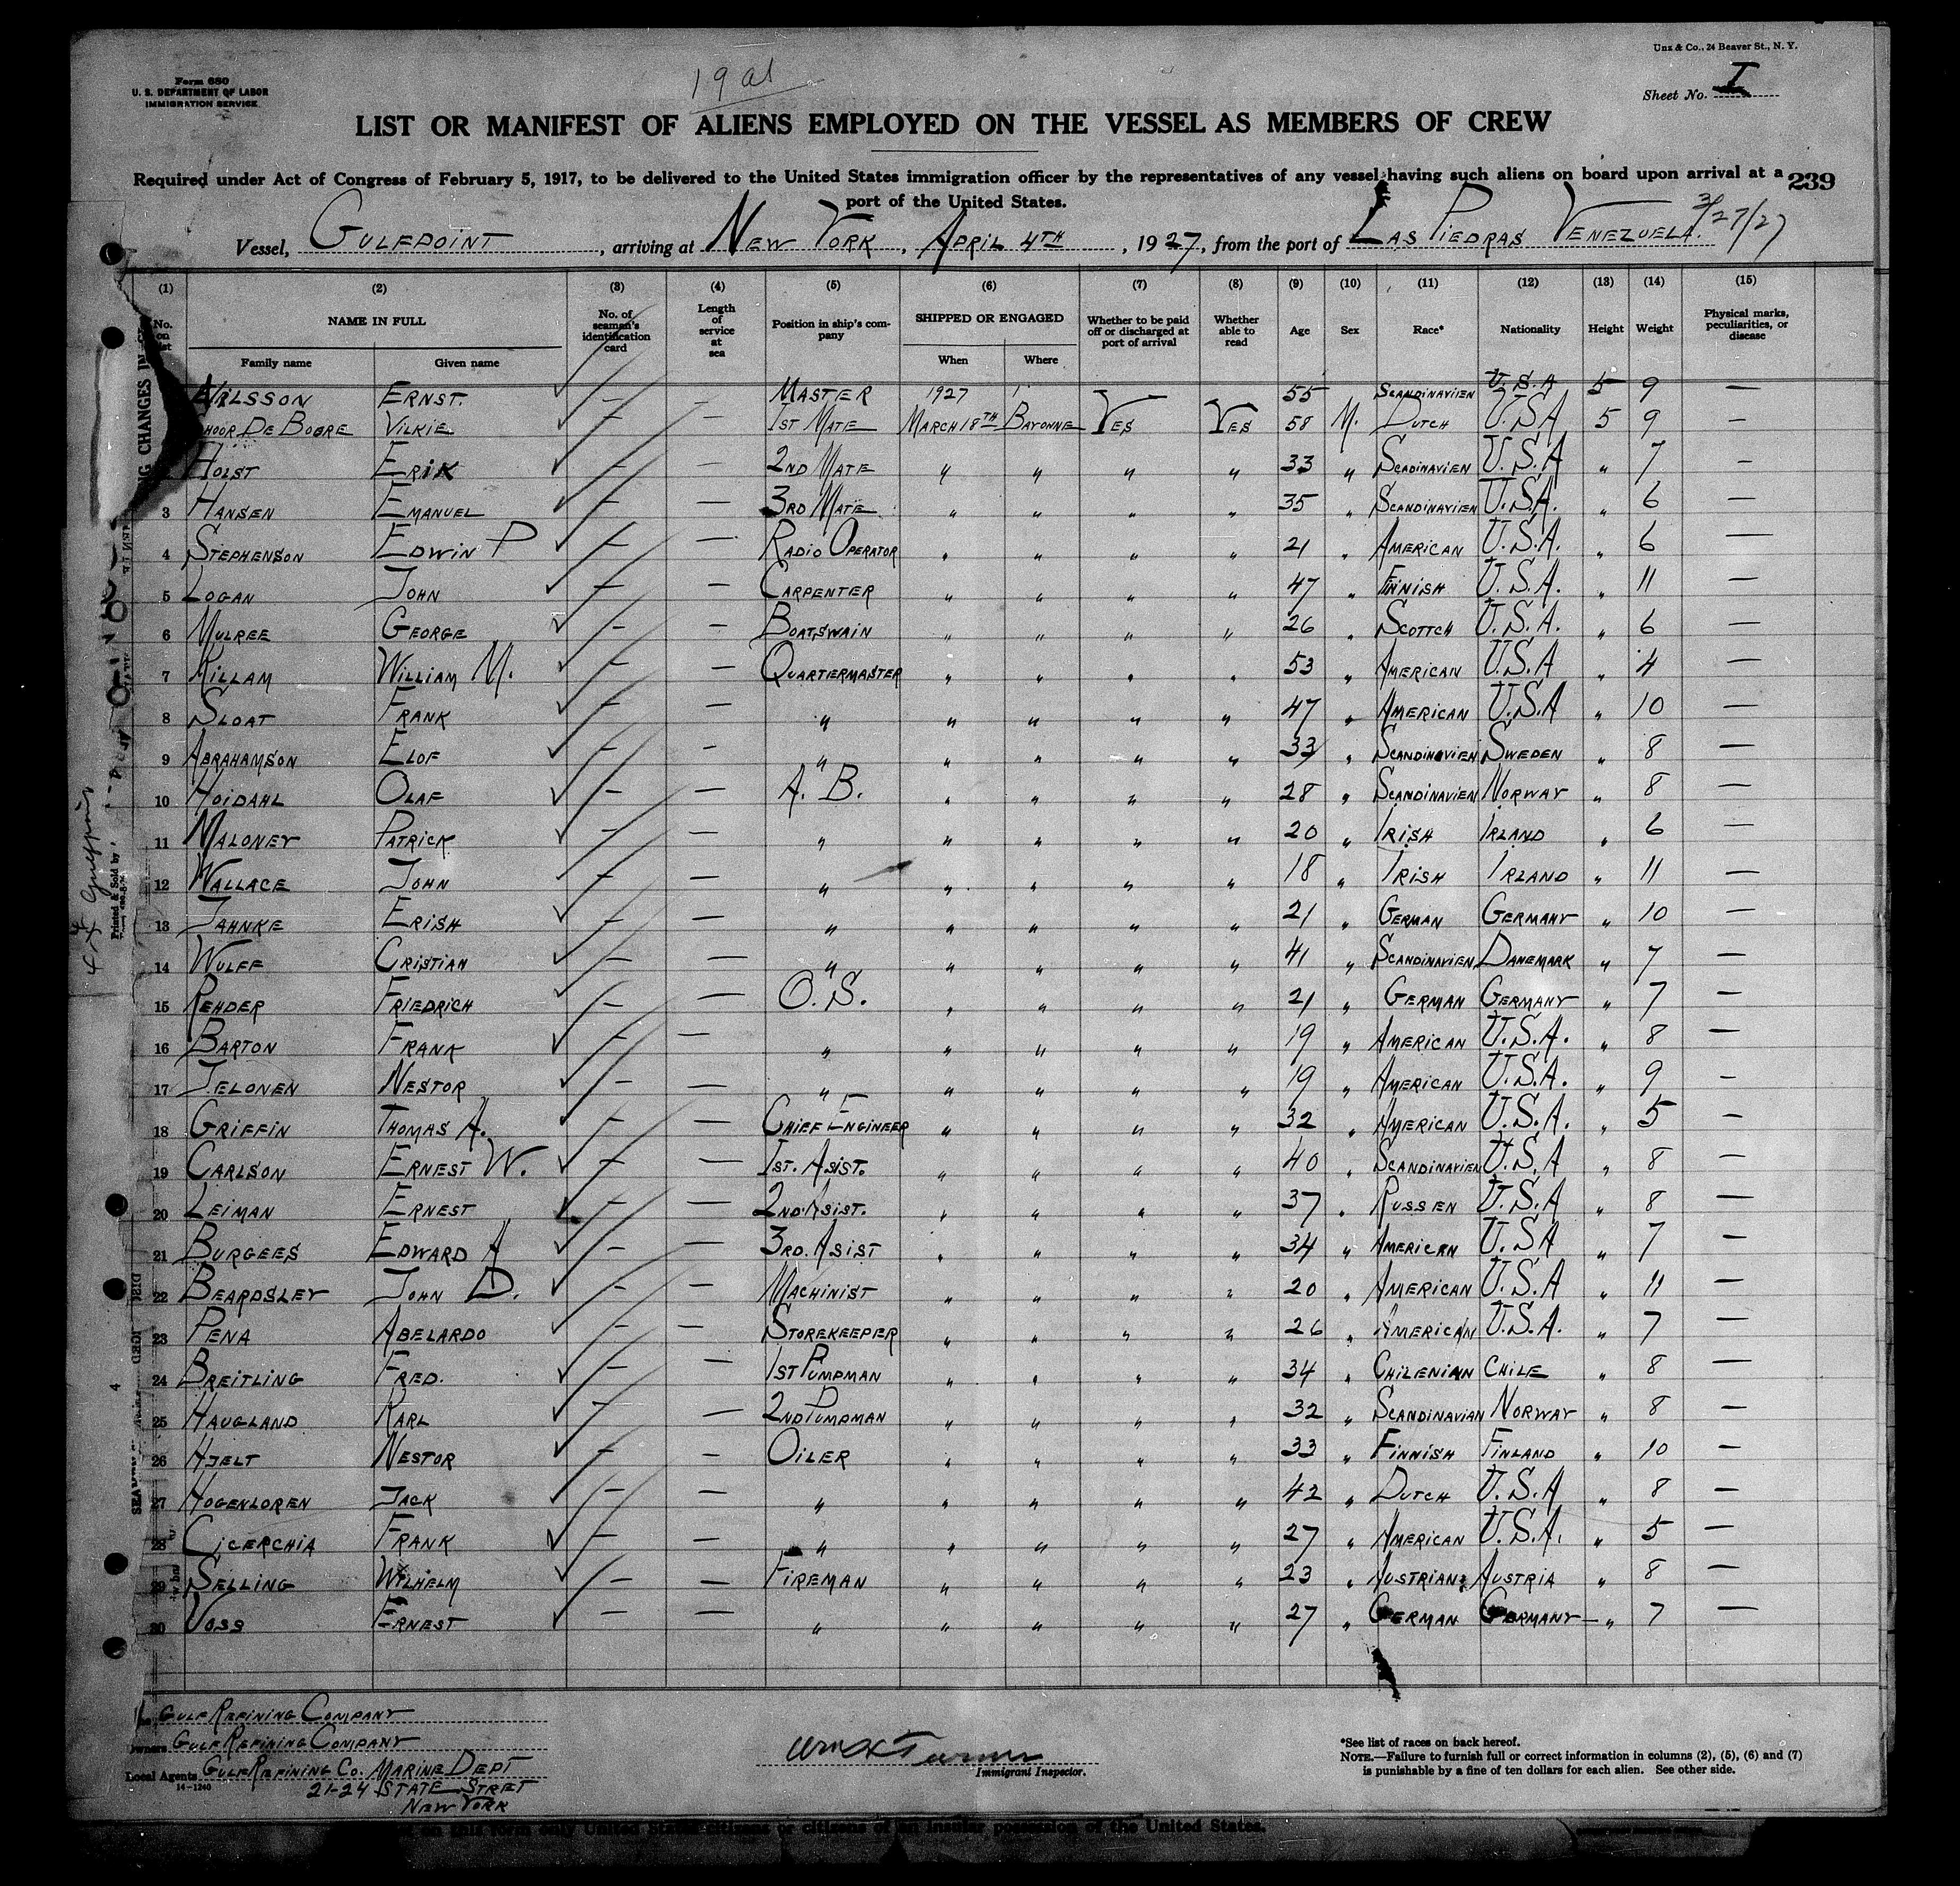 Unz & Co., 24 Beaver St., N. Y.
Form 680
U. S. DEPARTMENT OF LABOR
IMMIGRATION SERVICE
19 al
Sheet No. I
LIST OR MANIFEST OF ALIENS EMPLOYED ON THE VESSEL AS MEMBERS OF CREW
Required under Act of Congress of February 5, 1917, to be delivered to the United States immigration officer by the representatives of any vessel having such aliens on board upon arrival at a
port of the United States.
239
Vessel, GULFPOINT, arriving at NEW YORK, APRIL 4TH, 1927, from the port of LAS PIEDRAS VENEZUELA. 3/27/27
(1) (2) (3) (4) (5) (6) (7) (8) (9) (10) (11) (12) (13) (14) (15)
No. on list NAME IN FULL Family name Given name No. of seaman's identification card Length of service at sea Position in ship's company SHIPPED OR ENGAGED When Where Whether to be paid off or discharged at port of arrival Whether able to read Age Sex Race* Nationality Height Weight Physical marks, peculiarities, or disease
NILSSON ERNST. ✓ — MASTER 1927 55 SCANDINAVIIEN U.S.A 5 9 —
DE BOERE VILKIE ✓ — — 1ST MATE MARCH 18TH BAYONNE YES YES 58 M. DUTCH U.S.A 5 9 —
HOLST ERIK ✓ — — 2ND MATE " " " " 33 " SCADINAVIEN U.S.A " 7 —
3 HANSEN EMANUEL ✓ — — 3RD MATE " " " " 35 " SCANDINAVIIEN U.S.A. " 6 —
4 STEPHENSON EDWIN P ✓ — — RADIO OPERATOR " " " " 21 " AMERICAN U.S.A. " 6 —
5 LOGAN JOHN ✓ — — CARPENTER " " " " 47 " FINNISH U.S.A. " 11 —
6 MULREE GEORGE ✓ — — BOATSWAIN " " " " 26 " SCOTTCH U.S.A. " 6 —
7 KILLAM WILLIAM M. ✓ — — QUARTERMASTER " " " " 53 " AMERICAN U.S.A " 4 —
8 SLOAT FRANK ✓ — — " " " " " 47 " AMERICAN U.S.A " 10 —
9 ABRAHAMSON ELOF ✓ — — " " " " " 33 " SCANDINAVIEN SWEDEN " 8 —
10 HOIDAHL OLAF ✓ — — A. B. " " " " 28 " SCANDINAVIEN NORWAY " 8 —
11 MALONEY PATRICK ✓ — — " " " " " 20 " IRISH IRLAND " 6 —
12 WALLACE JOHN ✓ — — " " " " " 18 " IRISH IRLAND " 11 —
13 JAHNKE ERISH ✓ — — " " " " " 21 " GERMAN GERMANY " 10 —
14 WULFF CRISTIAN ✓ — — " " " " " 41 " SCANDINAVIEN DANEMARK " 7 —
15 REHDER FRIEDRICH ✓ — — O. S. " " " " 21 " GERMAN GERMANY " 7 —
16 BARTON FRANK ✓ — — " " " " " 19 " AMERICAN U.S.A. " 8 —
17 JELONEN NESTOR ✓ — — " " " " " 19 " AMERICAN U.S.A. " 9 —
18 GRIFFIN THOMAS A. ✓ — — CHIEF ENGINEER " " " " 32 " AMERICAN U.S.A. " 5 —
19 CARLSON ERNEST W. ✓ — — 1ST. ASIST. " " " " 40 " SCANDINAVIEN U.S.A " 8 —
20 LEIMAN ERNEST ✓ — — 2ND ASIST. " " " " 37 " RUSSEN U.S.A " 8 —
21 BURGEES EDWARD A ✓ — — 3RD. ASIST " " " " 34 " AMERICAN U.S.A " 7 —
22 BEARDSLEY JOHN D. ✓ — — MACHINIST " " " " 20 " AMERICAN U.S.A " 11 —
23 PENA ABELARDO ✓ — — STOREKEEPER " " " " 26 " AMERICAN U.S.A. " 7 —
24 BREITLING FRED. ✓ — — 1ST PUMPMAN " " " " 34 " CHILENIAN CHILE " 8 —
25 HAUGLAND KARL ✓ — — 2ND PUMPMAN " " " " 32 " SCANDINAVIAN NORWAY " 8 —
26 HJELT NESTOR ✓ — — OILER " " " " 33 " FINNISH FINLAND " 10 —
27 HOGENLOREN JACK ✓ — — " " " " " 42 " DUTCH U.S.A " 8 —
28 CICERCHIA FRANK ✓ — — " " " " " 27 " AMERICAN U.S.A. " 5 —
29 SELLING WILHELM ✓ — — FIREMAN " " " " 23 " AUSTRIAN AUSTRIA " 8 —
30 VOSS ERNEST ✓ — — " " " " " 27 " GERMAN GERMANY — " 7 —
GULF REFINING COMPANY
Owners GULF REFINING COMPANY
Local Agents GULF REFINING CO. MARINE DEPT
14—1240
21-24 STATE STREET
NEW YORK
Immigrant Inspector.
*See list of races on back hereof.
NOTE.—Failure to furnish full or correct information in columns (2), (5), (6) and (7)
is punishable by a fine of ten dollars for each alien. See other side.
on this form only United States citizens or citizens of an insular possession of the United States.
Printed & Sold by